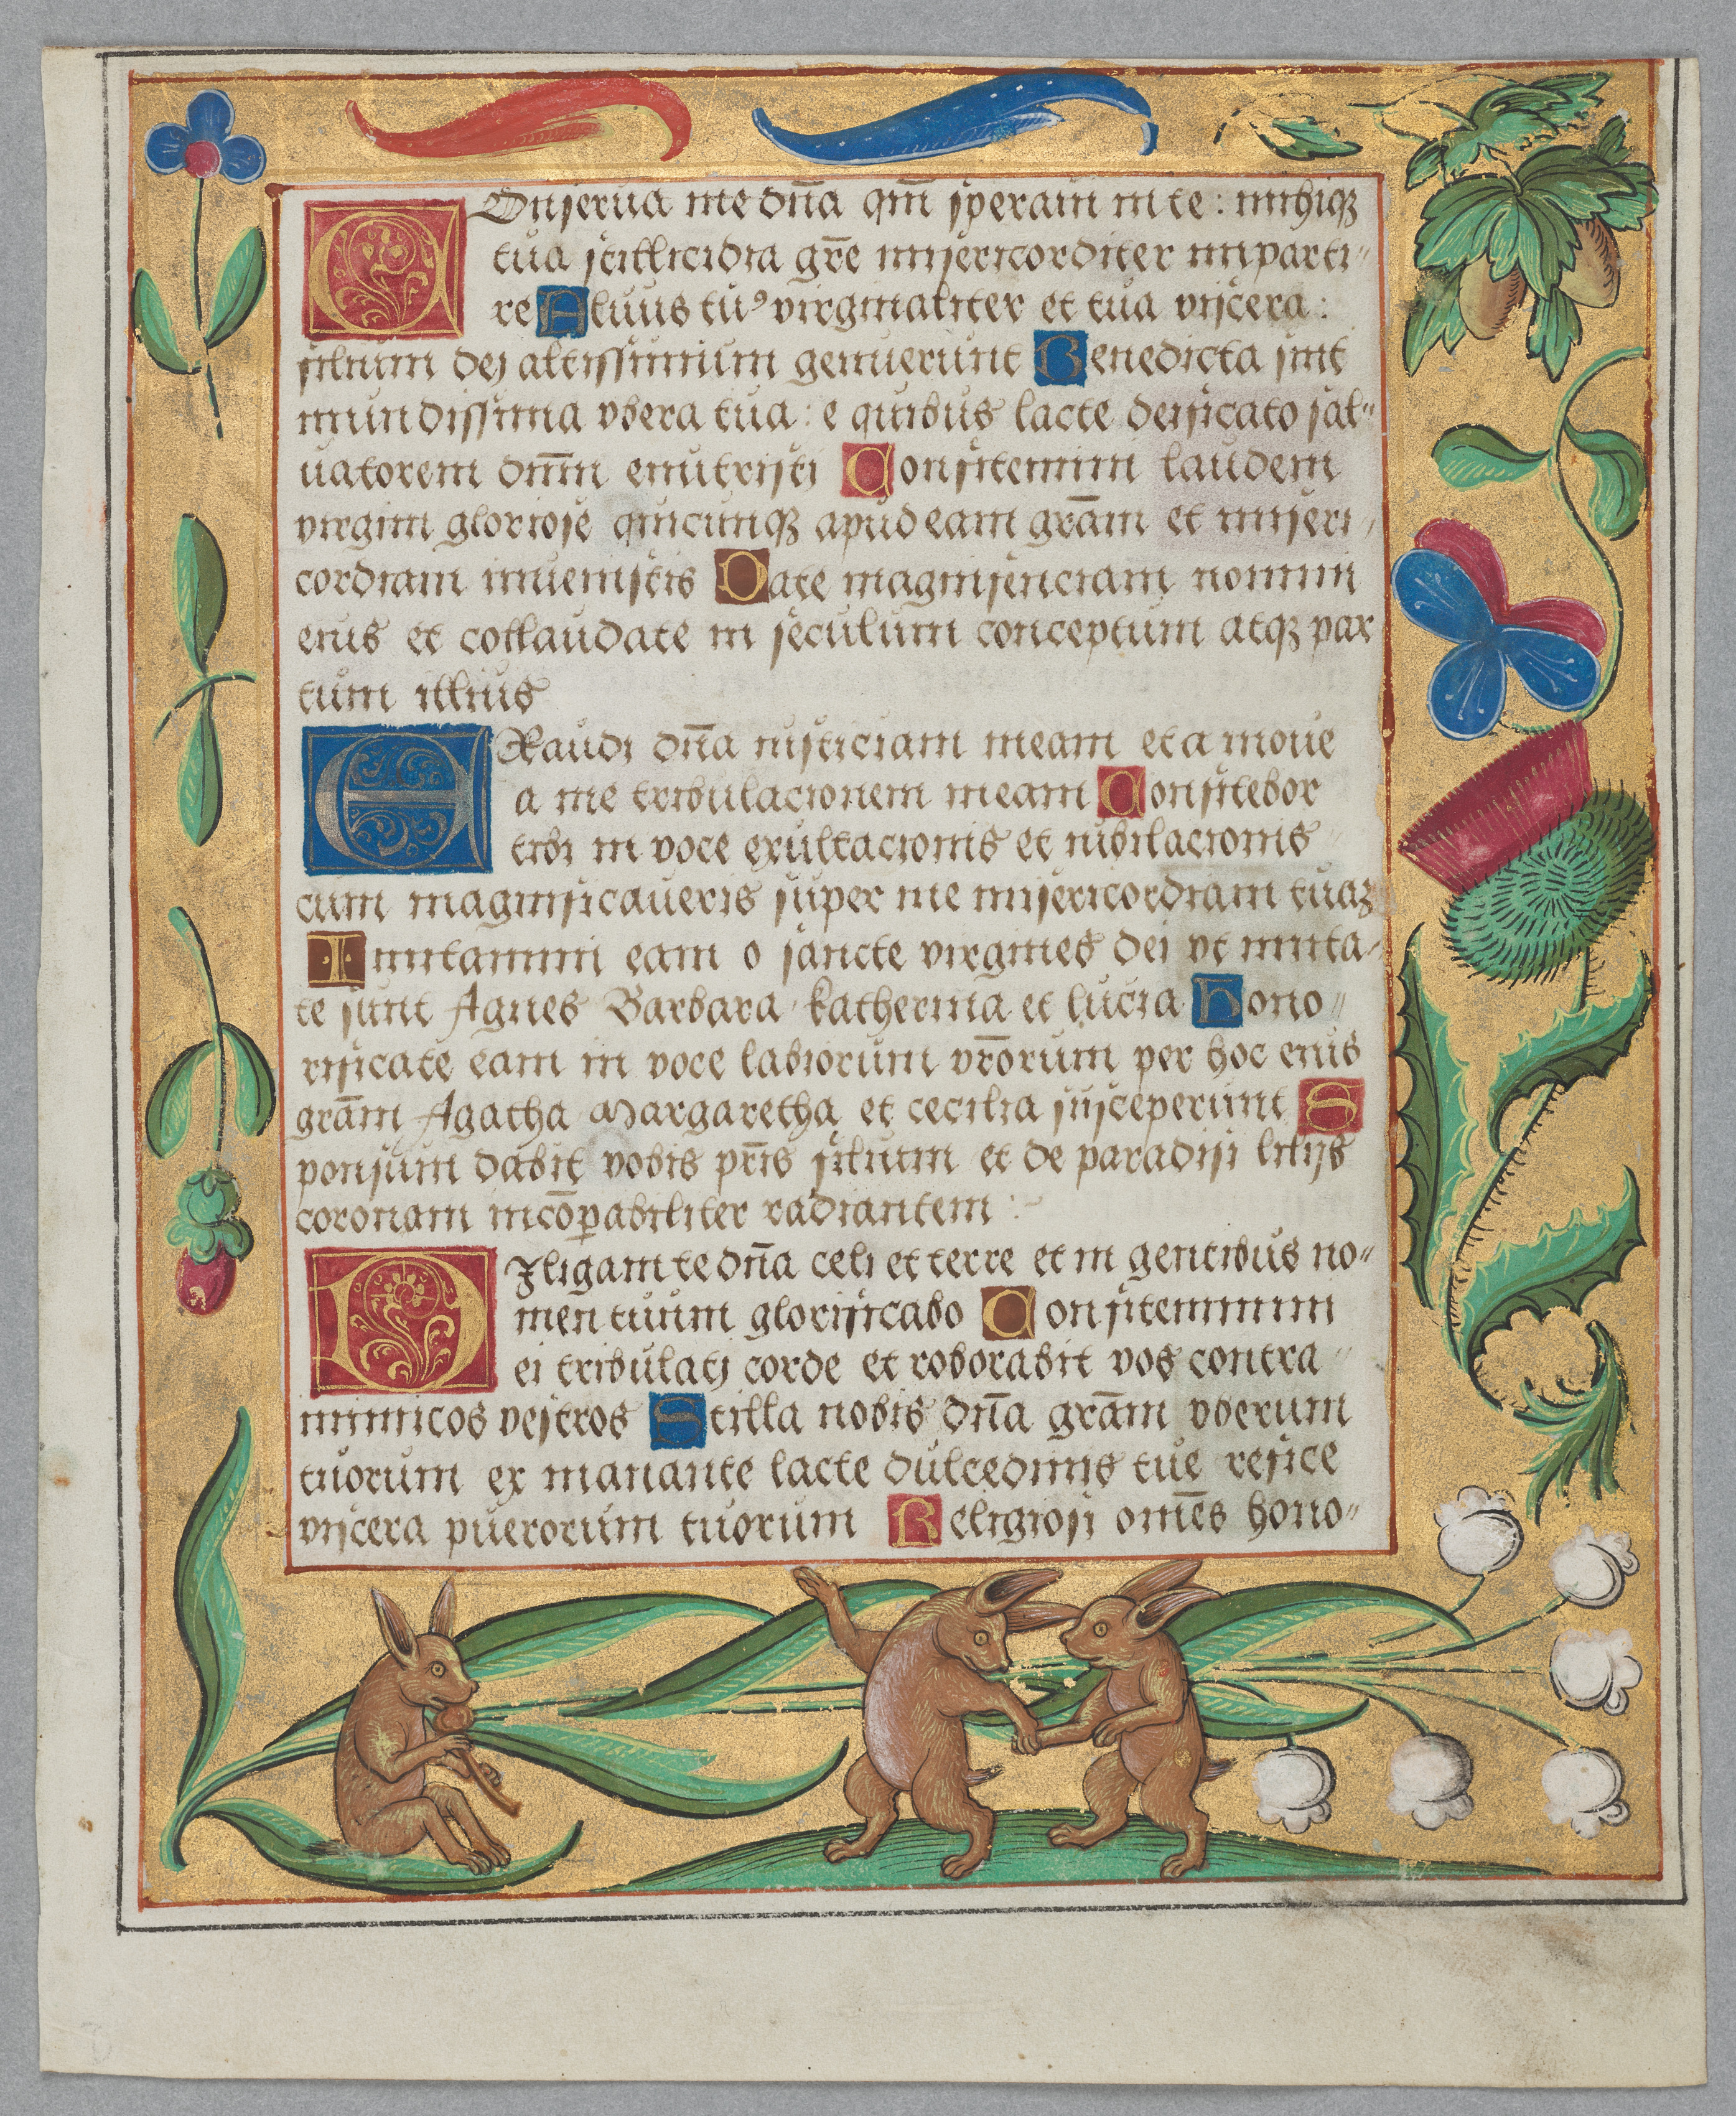 COnserua me dn̄a qm̄ speraui in te : michiqꝫ
tua stillicidia gr̄e misericorditer imparti〃
re Aluus tuꝰ virginaliter et tua viscera :
filium dej altissimium genuerunt Benedicta sint
mundissima vbera tua : e quibus lacte deificato sal〃
uatorem dn̄m enutristj Confitemini laudem
virgini gloriose quicunqꝫ apud eam grām et miseri〃
cordiam inuenistis Date magnificenciam nomini
eius et collaudate in seculum conceptum atqꝫ par
tum illius
EXaudi dn̄a iusticiam meam et a moue
a me tribulacionem meam Confitebor
tibi in voce exultacionis et iubilacionis
cum magnificaueris super me misericordiam tuaꝫ
Imitamini eam o sancte virgines dei vt imita〃
te sunt Agnes Barbara katherina et lucia Hono〃
rificate eam in voce labiorum vr̄orum per hoc enis
grām Agatha Margaretha et cecilia susceperunt S
ponsum dabit vobis pr̄is filium et de paradisi lilijs
coronam incōꝑabiliter radiantem :
DIligam te dn̄a celi et terre et in gentibus no〃
men tuum glorificabo Confiteminim
ei tribulatj corde et roborabit vos contra〃
inimicos vestros Stilla nobis dn̄a grām vberum
tuorum ex manante lacte dulcedinis tue refice
viscera puerorum tuorum Religiosi om̄es hono〃